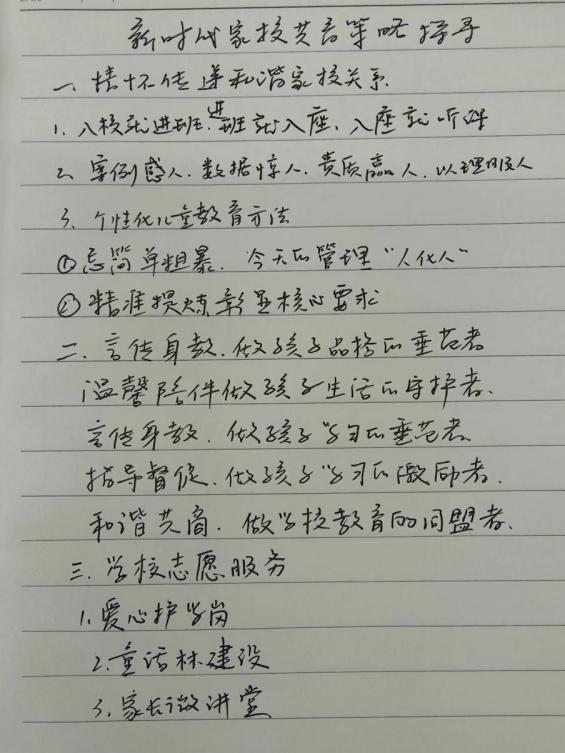 新时代家校共育策略探寻
一、情怀传递和谐家校关系
1. 入校就进班、进班就入座、入座就听讲
2. 案例感人、数据惊人、贵质赢人、以理服人
3. 个性化儿童教育方法
①忌简单粗暴、今天的管理“人化人”
②精准提炼彰显核心要求
二、言传身教、做孩子品格的垂范者
温馨陪伴做孩子生活的守护者、
言传身教、做孩子学习的垂范者、
指导督促、做孩子学习的激励者、
和谐共商、做学校教育的同盟者、
三、学校志愿服务
1. 爱心护学岗
2. 童话林建设
3. 家长微讲堂